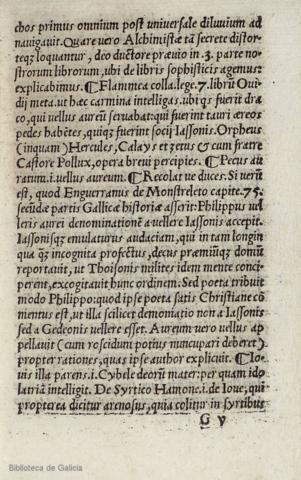 chos primus omnium post universale diluvium ad
navigauit. Quare vero Alchimistæ tā secrete distor-
teq; loquantur, deo ductore prævio in .3. parte no-
strorum librorum, ubi de libris sophisticis agemus:
explicabimus. ¶ Flammea colla. lege. 7. librū Oui-
dij meta. ut hæc carmina intelligas. ubi q̃s fuerit dra
co, qui vellus aureū seruabat: qui fuerint tauri æreos
pedes habētes, quiq; fuerint socij Iassonis. Orpheus
(inquam) Hercules, Calays et zetus & cum fratre
Castore Pollux, opera brevi percipies. ¶ Pecus au
ratum. i. vellus aureum. ¶ Recolat ve duces. Si verū
est, quod Enguerranus de Monstreleto capite. 75.
secūdæ partis Gallicæ historiæ asserit: Philippus vel
leris aurei denominationē a vellere Iassonis accepit.
Iassonisq; emulaturus audaciam, qui in tam longin
qua q̃; incognita profectus, decus præmiūq; domū
reportauit, ut Thoisonis milites idem mente conci-
perent, excogitauit hunc ordinem. Sed poeta tribuit
modo Philippo: quod ipse poeta satis Christiane cō
mentus est, ut illa scilicet demoniatio non a Iassonis
sed a Gedeonis vellere esset. Aureum vero vellus ap
pellauit (cum roscidum potius nuncupari deberet)
propter rationes, quas ipse author explicuit. ¶ Io-
uis illa parens. i. Cybele deorū mater: per quam ido
latriā intelligit. De Syrtico Hamone. i. de Ioue, qui
propterea dicitur arenosus, quia colitur in syrtibus
G v
Biblioteca de Galicia